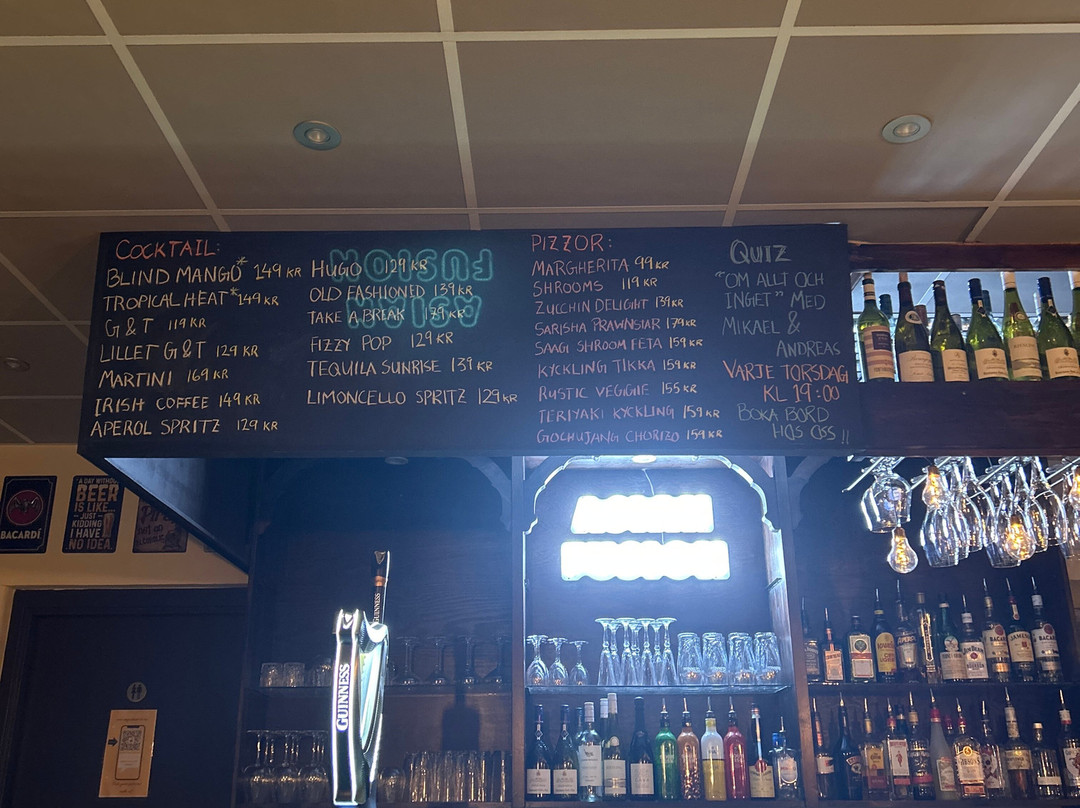 COCKTAIL:
BLIND MANGO* 149 KR
TROPICAL HEAT* 149 KR
G & T 119 KR
LILLET G & T 129 KR
MARTINI 169 KR
IRISH COFFEE 149 KR
APEROL SPRITZ 129 KR
HUGO 129 KR
OLD FASHIONED 139 KR
TAKE A BREAK 179 KR
FIZZY POP 129 KR
TEQUILA SUNRISE 139 KR
LIMONCELLO SPRITZ 129 KR
FUSION
ASIAN
PIZZOR:
MARGHERITA 99 KR
SHROOMS 119 KR
ZUCCHIN DELIGHT 139 KR
SARISHA PRAWNSTAR 179 KR
SAAGI SHROOM FETA 159 KR
KYCKLING TIKKA 159 KR
RUSTIC VEGGIE 155 KR
TERIYAKI KYCKLING 159 KR
GOCHUJANG CHORIZO 159 KR
QUIZ
"OM ALLT OCH
INGET" MED
MIKAEL &
ANDREAS
VARJE TORSDAG
KL 19:00
BOKA BORD
HOS OSS !!
BACARDÍ
A DAY WITHOUT
BEER
IS LIKE...
JUST
KIDDING
I HAVE
NO IDEA.
GUINNESS
GUINNESS